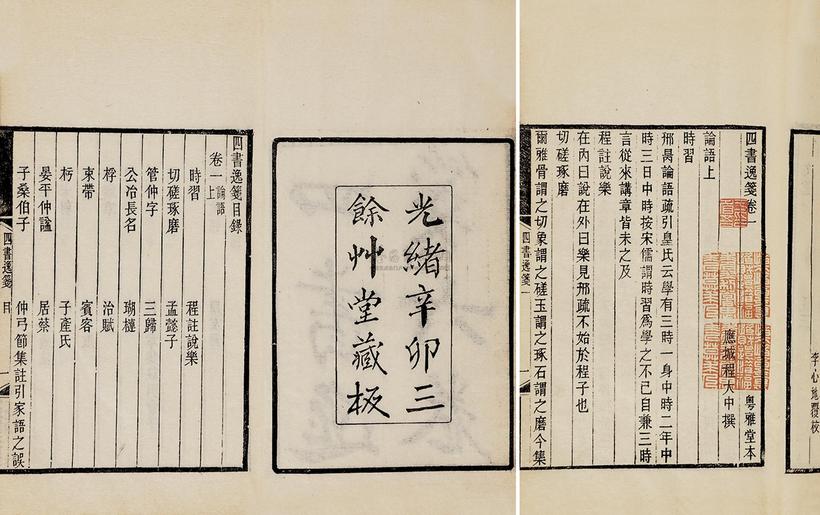 四書逸箋卷一
粵雅堂本
應城程大中撰
論語上
時習
邢昺論語疏引皇氏云學有三時一身中時二年中
時三日中時按宋儒謂時習爲學之不已自兼三時
言從來講章皆未之及
程註說樂
在內曰說在外曰樂見邢疏不始於程子也
切磋琢磨
爾雅骨謂之切象謂之磋玉謂之琢石謂之磨今集
四書逸箋
光緒辛卯三
餘艸堂藏板
四書逸箋目錄
卷一上論語
時習 程註說樂
切磋琢磨 孟懿子
管仲字 三歸
公冶長名 瑚槤
桴 治賦
束帶 賓客
栭 子產氏
晏平仲諡 居蔡
子桑伯子 仲弓節集註引家語之誤
四書逸箋 目
李心地覆校